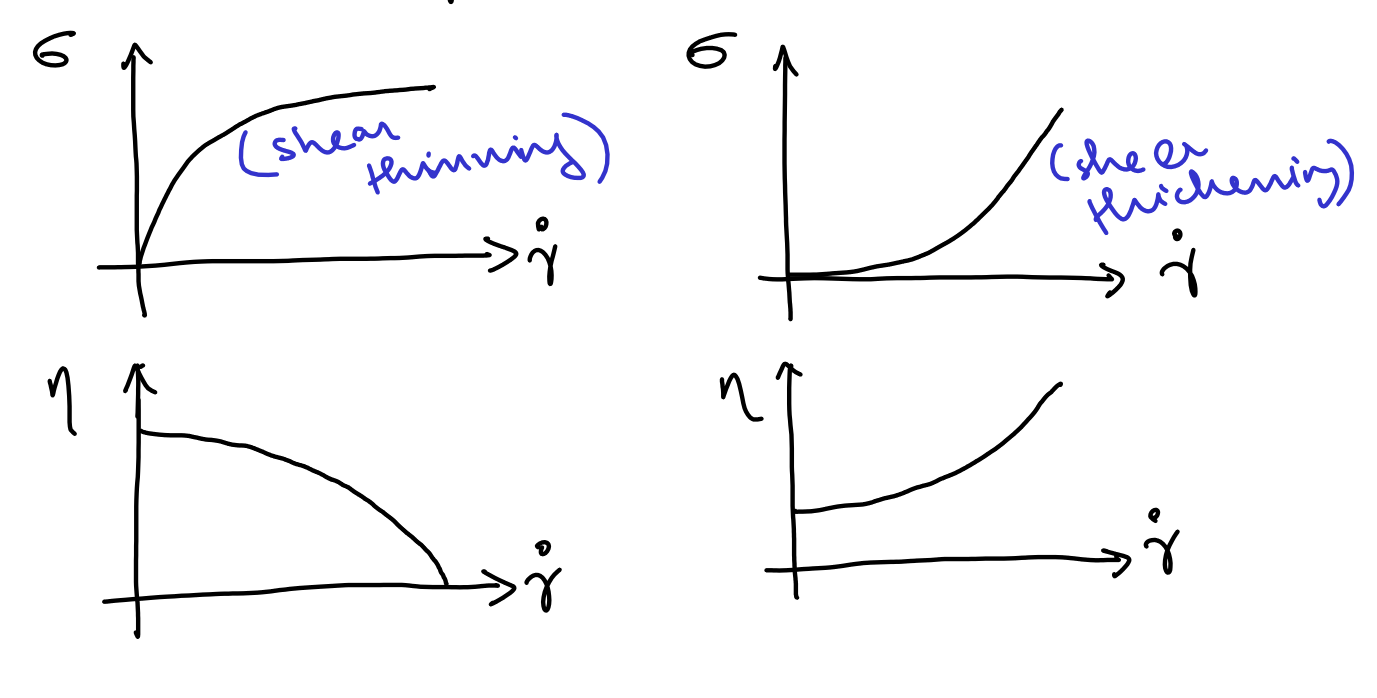 σ
(shear
thinning)
γ̇
σ
(shear
thickening)
γ̇
η
γ̇
η
γ̇